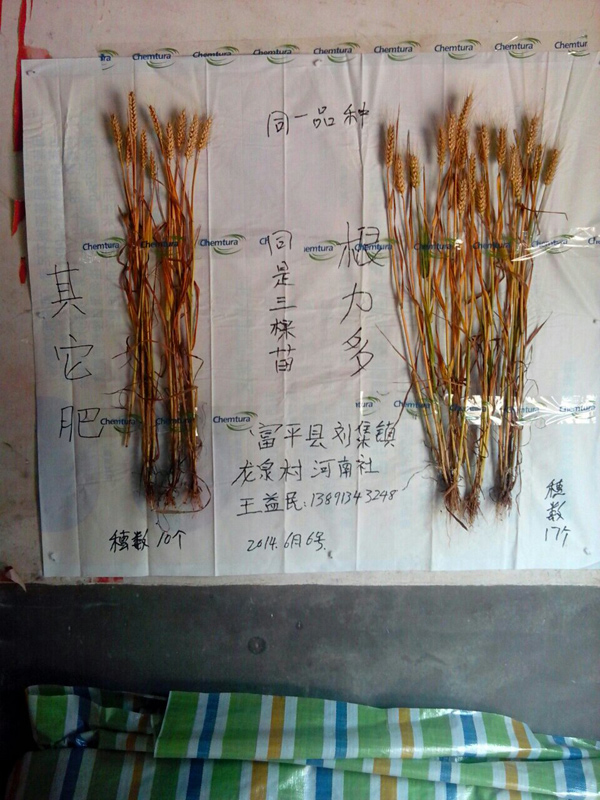 Chemtura Chemtura Chemtura Chemtura Chemtura Chemtura Chemtura
同一品种
Chemtura Chemtura Chemtura
其它肥
同是三棵苗
根力多
Chemtura
富平县刘集镇
龙泉村河南社
王益民:13891343248
穗数10个
2014.6月6号
穗数
17个